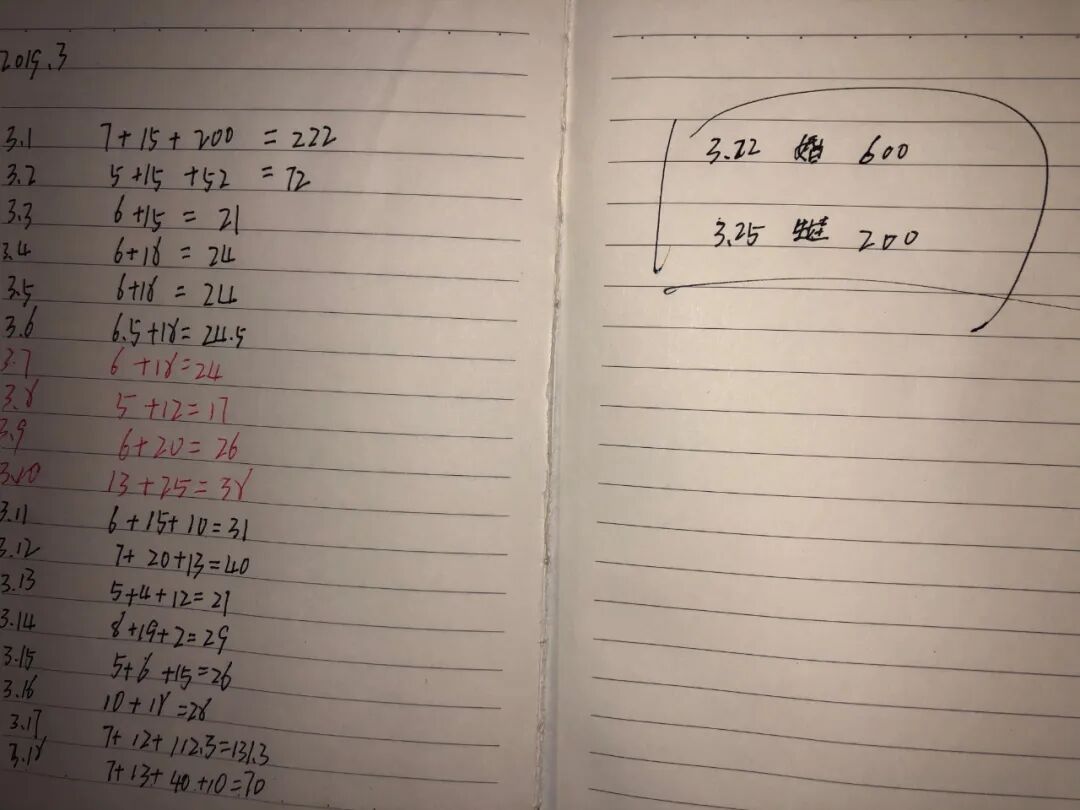 2019.3
3.1 7+15+200 =222
3.2 5+15+52 =72
3.3 6+15=21
3.4 6+18=24
3.5 6+18=24
3.6 6.5+18=24.5
3.7 6+18=24
3.8 5+12=17
3.9 6+20=26
3.10 13+25=38
3.11 6+15+10=31
3.12 7+20+13=40
3.13 5+4+12=21
3.14 8+19+2=29
3.15 5+6+15=26
3.16 10+18=28
3.17 7+12+112.3=131.3
3.18 7+13+40+10=70
3.22 婚 600
3.25 生娃 200